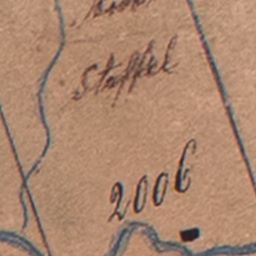 Staffel
2006